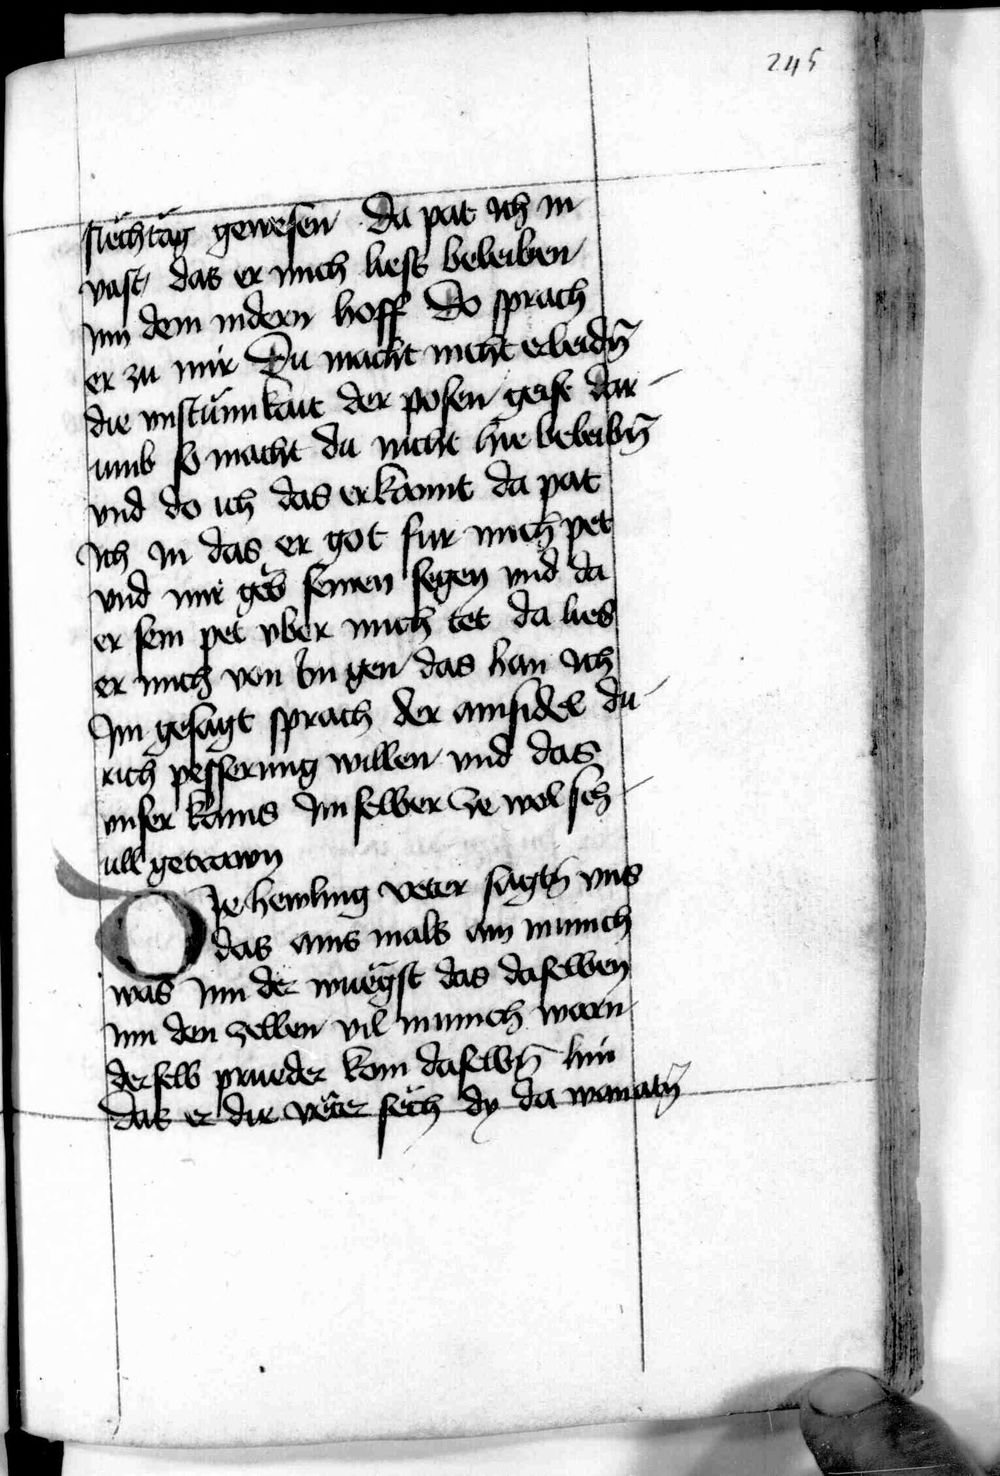 245
siechtag gewesen Da pat ich in
vast das er mich liess beleiben
inn dem indern hoff Do sprach
er zu mir Du macht nicht erleidn̄
die vnstümkait der posen geist dar
umb so macht du nicht hie beleibn̄
vnd do ich das erkannt da pat
ich in das er got fur mich pet
vnd mir geb seinen segen vnd da
er sein pet vber mich tet da lies
er mich von im gen das han ich
Im gesagt sprach der ainsidel du
rich pesserung willen vnd das
vnser kains Im selber ze wol sch
ull getrawn
Die hewling veter sagtn̄ vns
das ains mals ain munich
was inn der wuegst das daselben
inn den zellen vil munich warn
derselb prueder kom daselbn̄ hin
das er die veter sech dy da wanatn̄